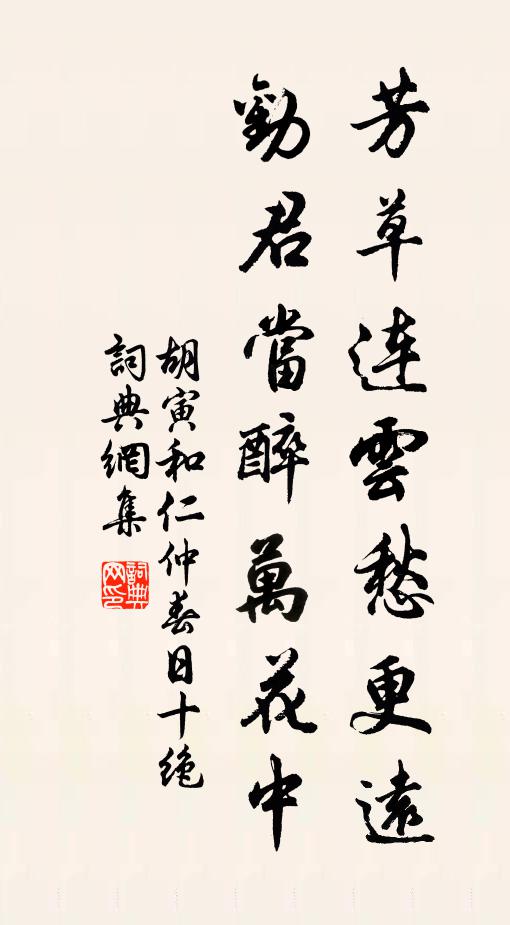 芳草連雲愁更遠
勸君當醉萬花中
胡寅和仁仲春日十絶
詞典網集
詞典
网印